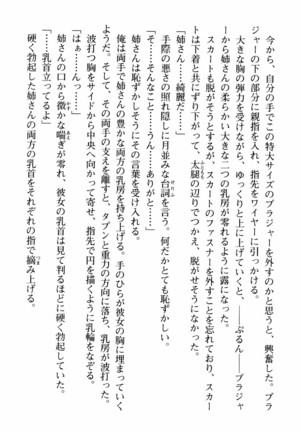 今から、自分の手でこの特大サイズのブラジャーを外すのかと思うと、興奮した。ブラ
ジャーの下の部分に親指を入れ、指先をワイヤーに引っかける。
大きな胸の弾力を受けながら、ゆっくりと上に上げていくと、――ぶるん――ブラジャ
ーから姉さんの柔らかい大きな二つの乳房が零れるように露になった。
スカートも脱がそうとするが、スカートのファスナーを外すことを忘れており、スカー
トは下着と共にずり下がって、太腿の辺りでつかえ、脱がせそうになかった。
「姉さん……綺麗だ……」
手際の悪さの照れ隠しに月並みな台詞を言う。何だかとても恥ずかしい。
「そ……そんなこと……うん……ありがと……」
姉さんは恥ずかしそうにその言葉を受け入れる。
俺は両手で姉さんの豊かな両方の乳房を持ち上げる。手のひらが彼女の胸に埋まっていく
ようだ。そして、その両手の支えを離すと、タプンと重力の方向に落ち、乳房が波打った。
波打つ胸をサイドから中央へ向かって寄せ、指先で円を描くように乳輪をなぞる。
「はぁ……んっ……」
姉さんの口から微かな喘ぎが零れ、彼女の乳首は見て判るほどに硬く勃起していた。
「……乳首立ってるよ」
硬く勃起した姉さんの両方の乳首をそれぞれの指で摘み上げる。